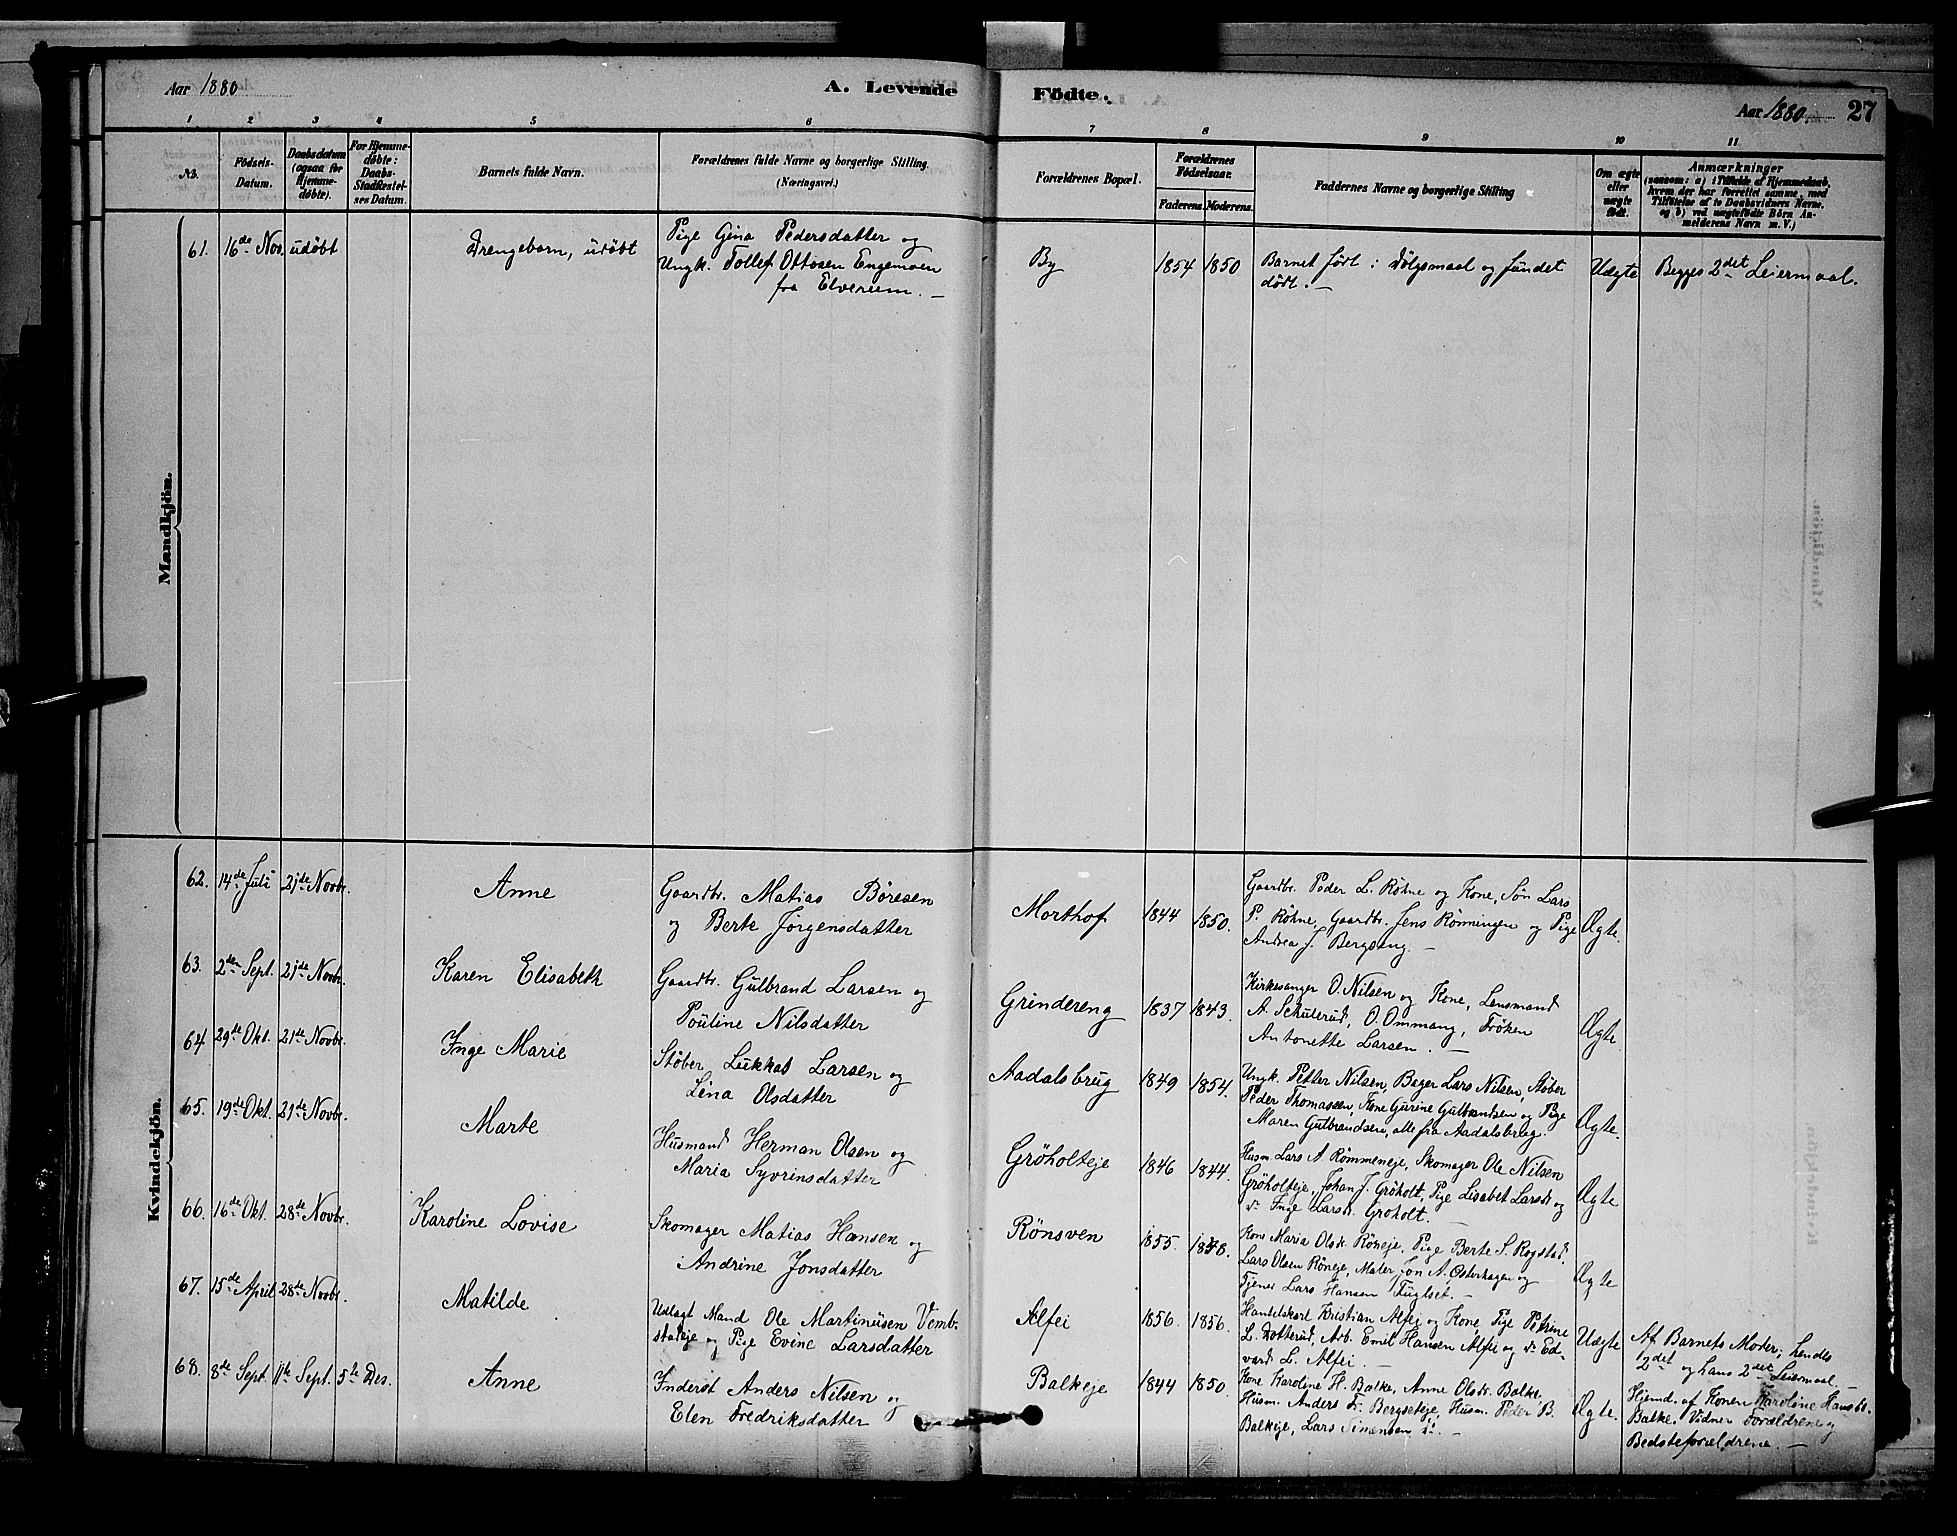 Aar 1880
A. Levende
Födte.
Aar 1880. 27
1 2 3 4 5 6 7 8 9 10 11
No.
Födsels-
Datum.
Daabsdatum
(ogsaa for
Hjemme-
døbte).
For Hjemme-
døbte:
Daabs-
Stadfæstel-
ses Datum.
Barnets fulde Navn.
Forældrenes fulde Navne og borgerlige Stilling.
(Næringsvei.)
Forældrenes Bopæl.
Forældrenes
Födselsaar.
Faderens. Moderens.
Faddernes Navne og borgerlige Stilling
Om ægte
eller
uægte
født.
Anmærkninger
(saasom: a) i Tilfælde af Hjemmedaab,
hvem der har forrettet samme, med
Tilføielse af to Daabsvidners Navne,
og b) ved uægtefødte Børn An-
melderens Navn m. V.)
Mandkjön.
61. 16de Nov. udöbt
Drengebarn, udöbt
Pige Gina Pedersdatter og
Ungk. Tollef Ottosen Engemoen
fra Elverum. —
By
1854 1850
Barnet født i Dölgsmaal og fundet
dödt. —
Uægte
Begges 2det Leiermaal.
Kvindekjön.
62. 14de Juli 21de Novbr.
Anne
Gaardbr. Matias Böresen
og Berte Jörgensdatter
Morthof
1844 1850.
Gaardbr. Peder L. Röhne og Kone, Sön Lars
P. Röhne, Gaardbr. Jens Rönningen og Pige
Andrea J. Bergseng. —
Ægte.
63. 2den Sept. 21de Novbr.
Karen Elisabeth
Gaardbr. Gulbrand Larsen og
Pouline Nilsdatter
Grindereng
1837 1843.
Kirkesanger O. Nilsen og Kone, Lensmand
A. Schulerud, O. Ommang, Fröken
Antonette Larsen. —
Ægte.
64 29de Okt. 21de Novbr.
Inge Marie
Stöber Lukkas Larsen og
Lina Olsdatter
Aadalsbrug
1849 1854.
Ungk. Petter Nilsen, Bager Lars Nilsen, Stöber
Peder Thomassen, Kone Gurine Gulbrandsen og Pige
Maren Gulbrandsen, alle fra Aadalsbrug.
Ægte.
65. 19de Okt. 21de Novbr.
Marte
Husmand Herman Olsen og
Maria Syvrinsdatter
Gröholteje
1846 1844.
Husm Lars A. Römmeneje, Skomager Ole Nilsen
Gröholteje, Johan J. Gröholt, Pige Lisabet Larsdr og
do Inge Larsd. Gröholt. —
Ægte
66. 16de Okt. 28de Novbr.
Karoline Lovise
Skomager Matias Hansen og
Andrine Jonsdatter
Rönsven
1855.
Kone Maria Olsdr. Röneje, Pige Berte S. Rogstad,
Lars Olsen Röneje, Maler Jon A. Österhagen og
Tjener Lars Hansen Fuglset. —
Ægte
67. 15de April 28de Novbr.
Matilde
Udlagt Mand Ole Martinusen Vemb-
stadeje og Pige Evine Larsdatter
Alfei
1856. 1856.
Handelskarl Kristian Alfei og Kone, Pige Petrine
L. Dotterud, Arb. Emil Hansen Alfei og do Ed-
vard L. Alfei. —
Uægte
Af Barnets Moder; hendes
2det og hans 2det Leiermaal —
68. 8de Sept. 11te Sept. 5te Des.
Anne
Inderst Anders Nilsen og
Elen Fredriksdatter
Balkeje
1844 1850.
Kone Karoline H. Balke, Anne Olsdr. Balke
Husm. Anders Fr. Bergseteje, Husm. Peder B.
Balkeje, Lars Simensen do. —
Ægte.
Hjemd. af Konen Karoline Hansdr.
Balke. Vidner Forældrene og
Bedsteforældrene. —